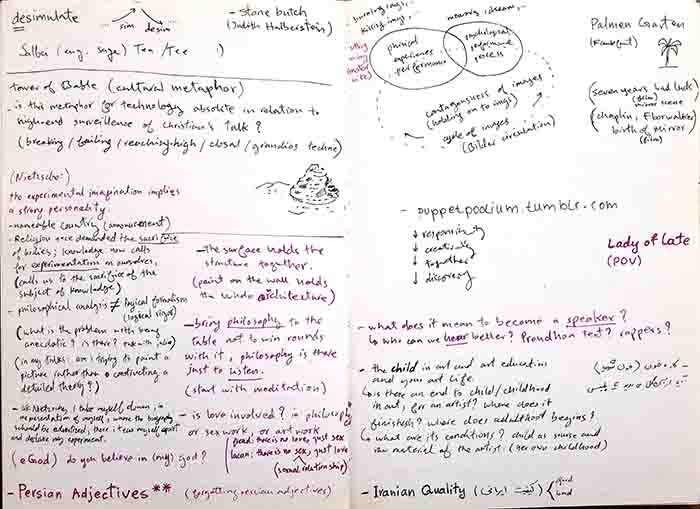 desimulate
sim desim
- stone butch
(Judith Halberstein)
Salbei (eng. sage) Tea / Tee :)
tower of Bable (cultural metaphor)
- is this metaphor for technology absolute in relation to
high-end surveillence of christina's talk?
(breaking / failing / reaching-high / closal / grandios techne)
(Nietzsche:)
the experimental imagination implies
a strong personality.
- nameable country (announcement)
- Religion once demanded the sacrifice
of bodies; knowledge now calls
for experimentation on ourselves,
(calls us to the sacrifice of the
subject of knowledge.)
- philosophical analysis ≠ logical formalism
(logical rigor)
(what is the problem with being
anecdotic? is there?
(in my talks: am i trying to paint a
picture rather than contructing a
detailed theory?)
- like Nietzsche, I take myself down, in
representation of myself, where the biography
should be
and declare my experiment.
(eGod) do you believe in (my) god?
- Persian Adjectives **
(forgetting persian adjectives)
- the surface holds the
structure together.
(paint on the wall holds
the whole architecture)
- bring philosophy to the
table not to win rounds
with it, philosophy is there
just to listen.
(start with meditation)
- is love involved? in philosophy
or sexwork, or art work
freud: there is no love, just sex
lacan: there is no sex, just love
(sexual relationship)
burning imgs,
kissing imgs,
mourning, dreams,
physical
experiences
performance
psychological
performance
process
contagousness of images
(holding on to imgs)
cycle of images
(Bilder circulation)
Palmen Garten
(Frankfurt)
(seven years bad luck
(film) mirror scene
(chaplin, Floorwalker)
birth of mirror
(film)
- puppetpodium.tumblr.com
↓ responsivity
↓ creativity
↓ together
↓ discovery
Lady of Late
(POV)
- what does it mean to become a speaker?
↳ who can we hear better? Proudhon text? rappers?
- the child in art and art education
and your art life.
↳ is there an end to child/childhood
in art, for an artist? where does it
finishesh? where does adulthood begins?
↳ what are its conditions? child as sourse and
raw material of the artist (her own childhood)
- Iranian Quality (کیفیت ایرانی) { good
bad